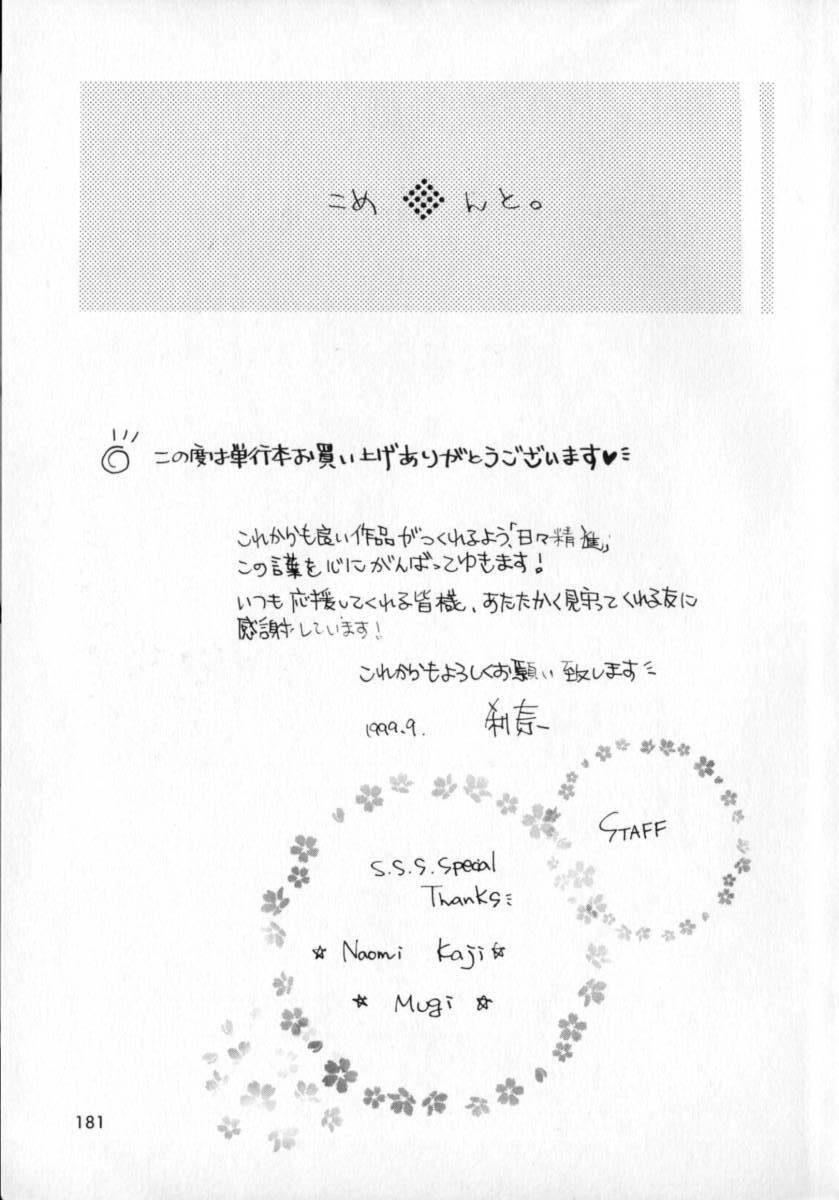 こめんと。
この度は単行本お買い上げありがとうございます♥
これからも良い作品がつくれるよう、「日々精進」
この言葉を心にがんばってゆきます!
いつも応援してくれる皆様、あたたかく見守ってくれる友に
感謝しています!
これからもよろしくお願い致します
1999.9.
STAFF
S.S.S. Special
Thanks
☆ Naomi Kaji ☆
☆ Mugi ☆
181